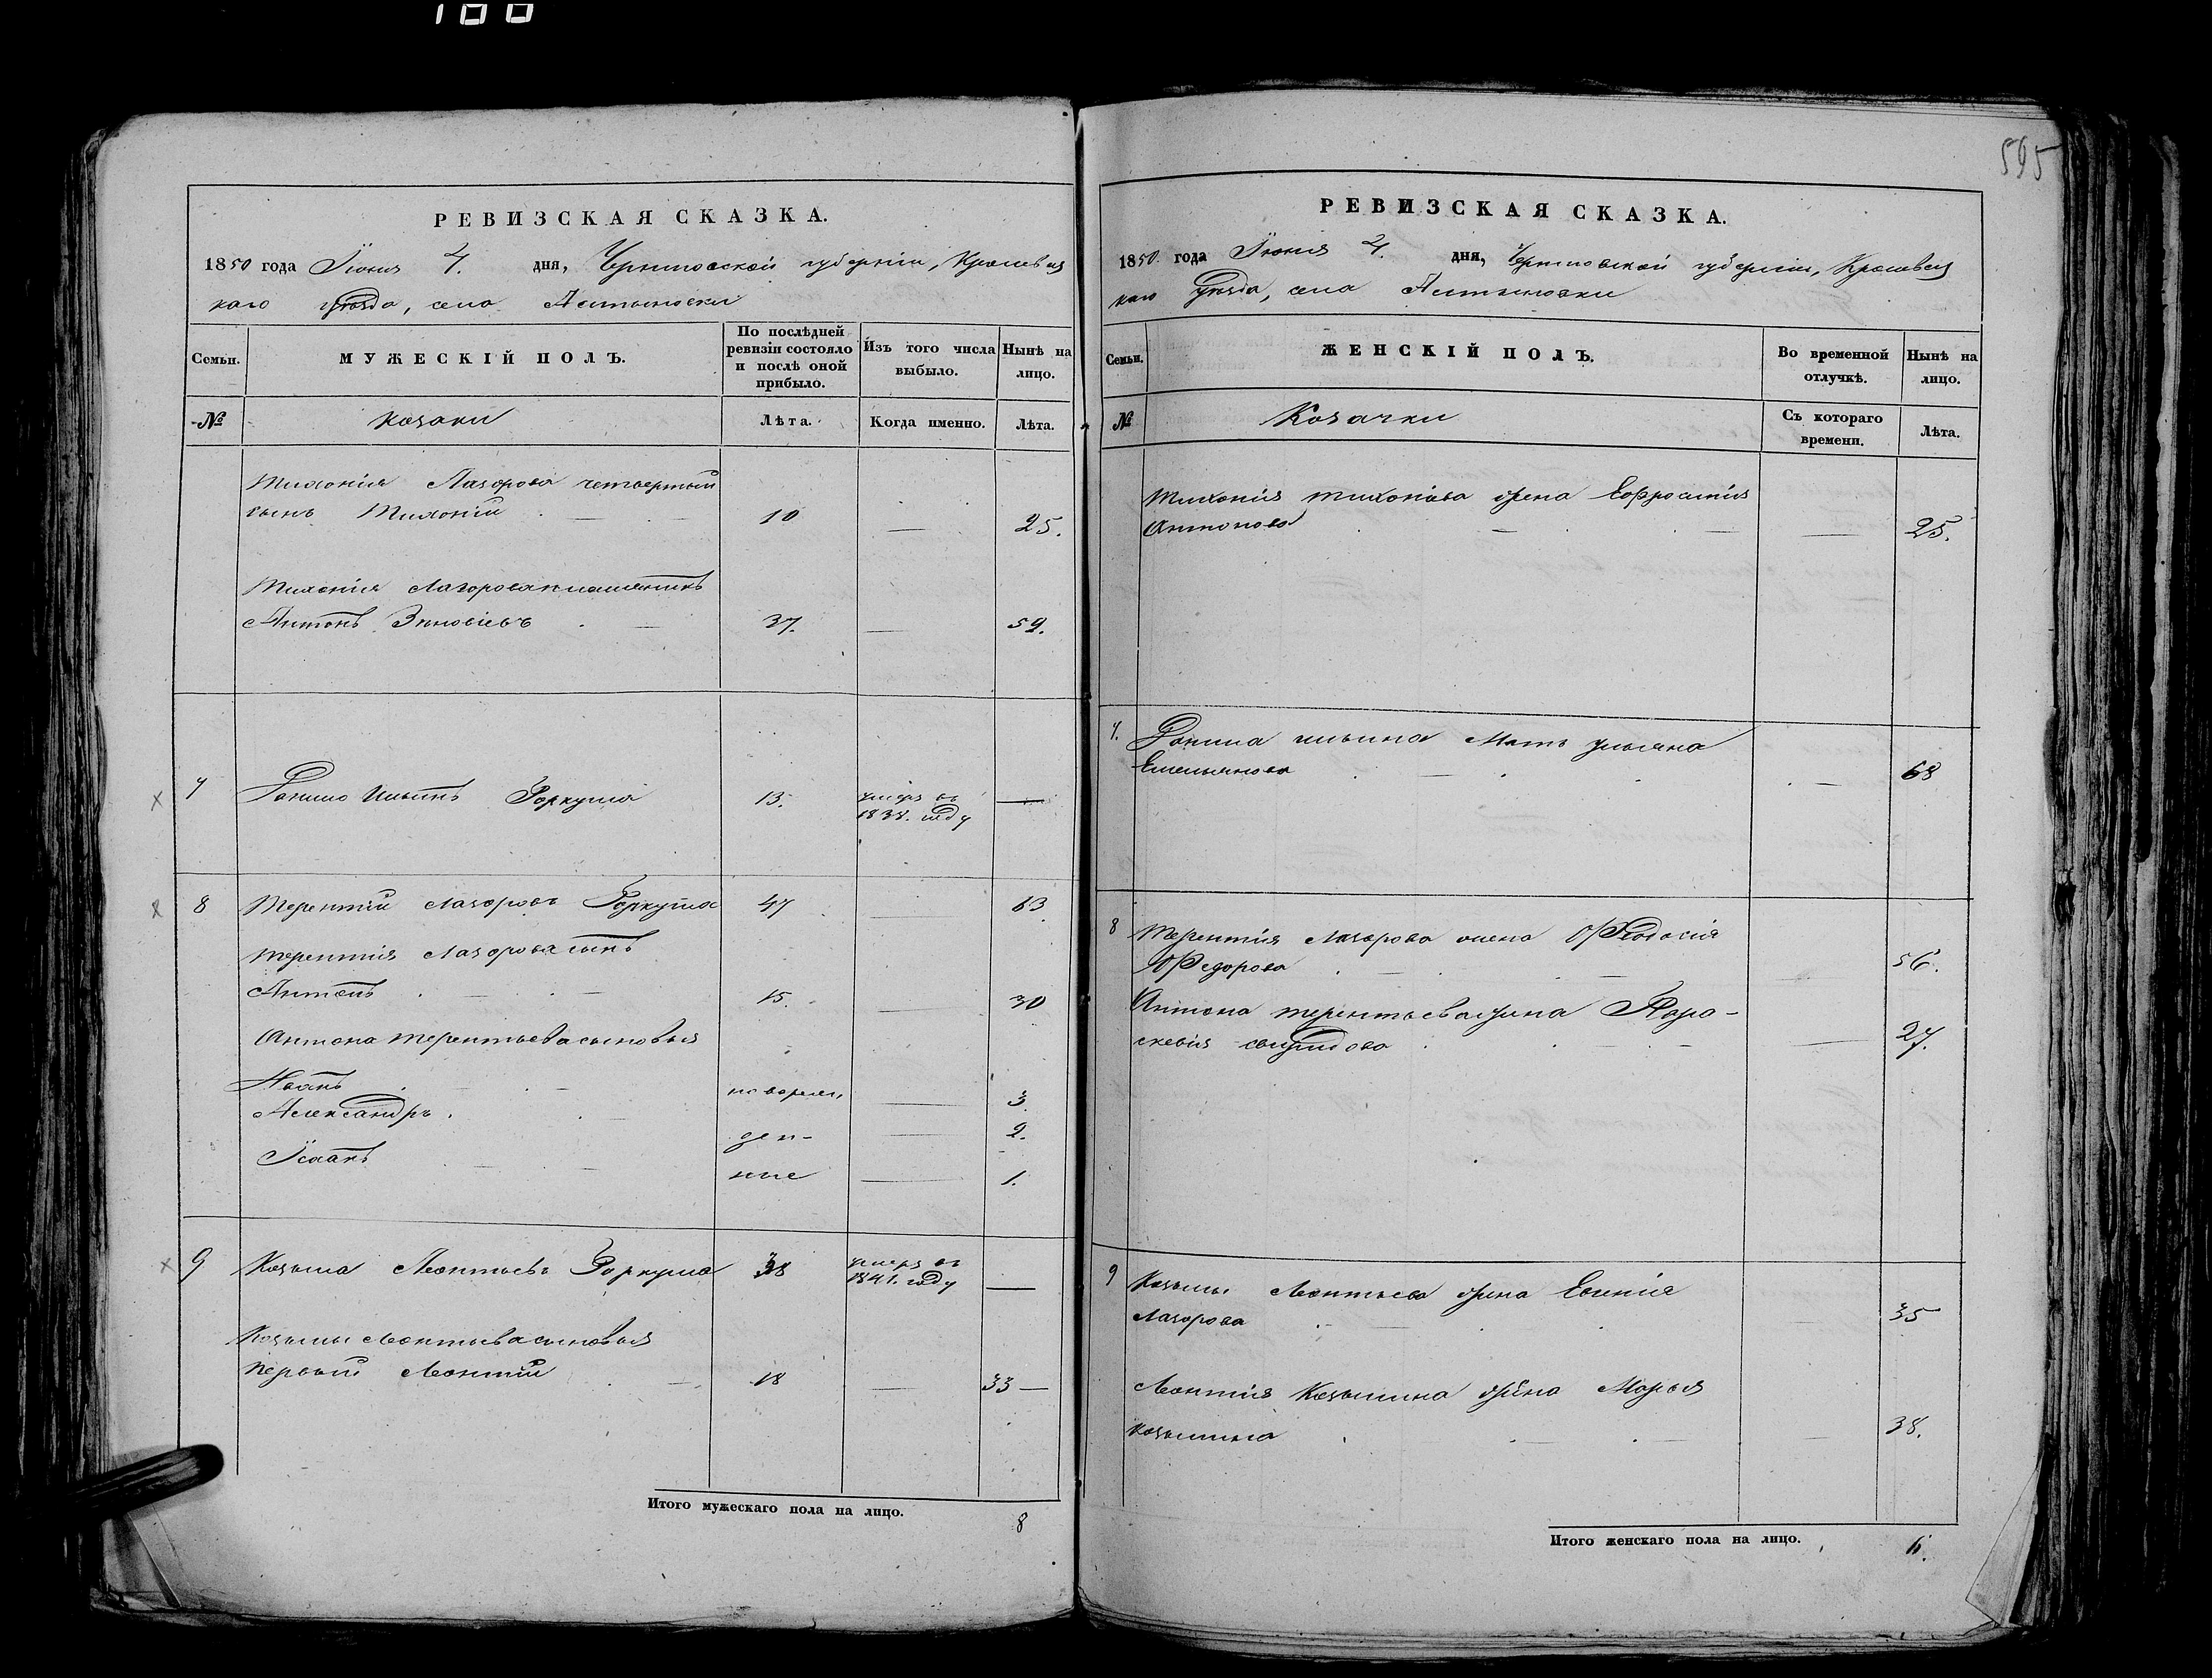 188
595
РЕВИЗСКАЯ СКАЗКА.
1850 года Іюня 4. дня, Черниговской губерніи, Кролевец
каго уѣзда, села Алтыновки
Семьи.
МУЖЕСКІЙ ПОЛЪ.
По послѣдней ревизіи состояло и послѣ оной прибыло.
Изъ того числа выбыло.
Нынѣ на лицо.
№ козаки Лѣта. Когда именно. Лѣта.
Тихонія Лазорова четвертый
сынъ Тихоній 10 — 25.
Тихонія Лазорова племянникъ
Антонъ Зѣновіевъ 37. — 59.
7 Ильинъ 13. умеръ въ —
1838. году
8 Терентій Лазоровъ 47 — 63
Терентія Лазорова сынъ
Антонъ 15. — 30
Антона Терентьева сыновья
Иванъ новорож, — 3.
Александръ. ден- — 2.
Іоанъ ные — 1.
9 Козьма Леонтьевъ 38 умеръ въ —
1841. году
Козьмы Леонтьева сыновья
Первый Леонтій 18 — 33 —
Итого мужескаго пола на лицо. 8
РЕВИЗСКАЯ СКАЗКА.
1850. года Іюня 4. дня, Черниговской губерніи, Кролевец
каго уѣзда, села Алтыновки
Семьи.
ЖЕНСКІЙ ПОЛЪ.
Во временной отлучкѣ.
Нынѣ на лицо.
№ Козачки Съ котораго времени. Лѣта.
Тихонія Тихоніева жена Ефросинія
Антонова — 25.
7. Ильина Мать Ульяна
Емельянова — 68
8 Терентія Лазорова жена Феодосія
Федорова — 56.
Антона Терентьева жена Пара-
скевія — 27.
9 Козьмы Леонтьева жена Евгенія
Лазорова — 35
Леонтія Козьмина жена Марья
Козьмина — 38.
Итого женскаго пола на лицо. 6.